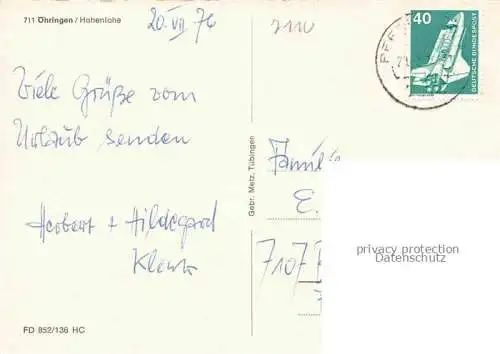 711 Öhringen / Hohenlohe
20. VII 76
7110
40
DEUTSCHE BUNDESPOST
Viele Grüße vom
Urlaub senden
Herbert + Hildegard
Gebr. Metz, Tübingen
Famili
E.
7107
privacy protection
Datenschutz
FD 852/136 HC